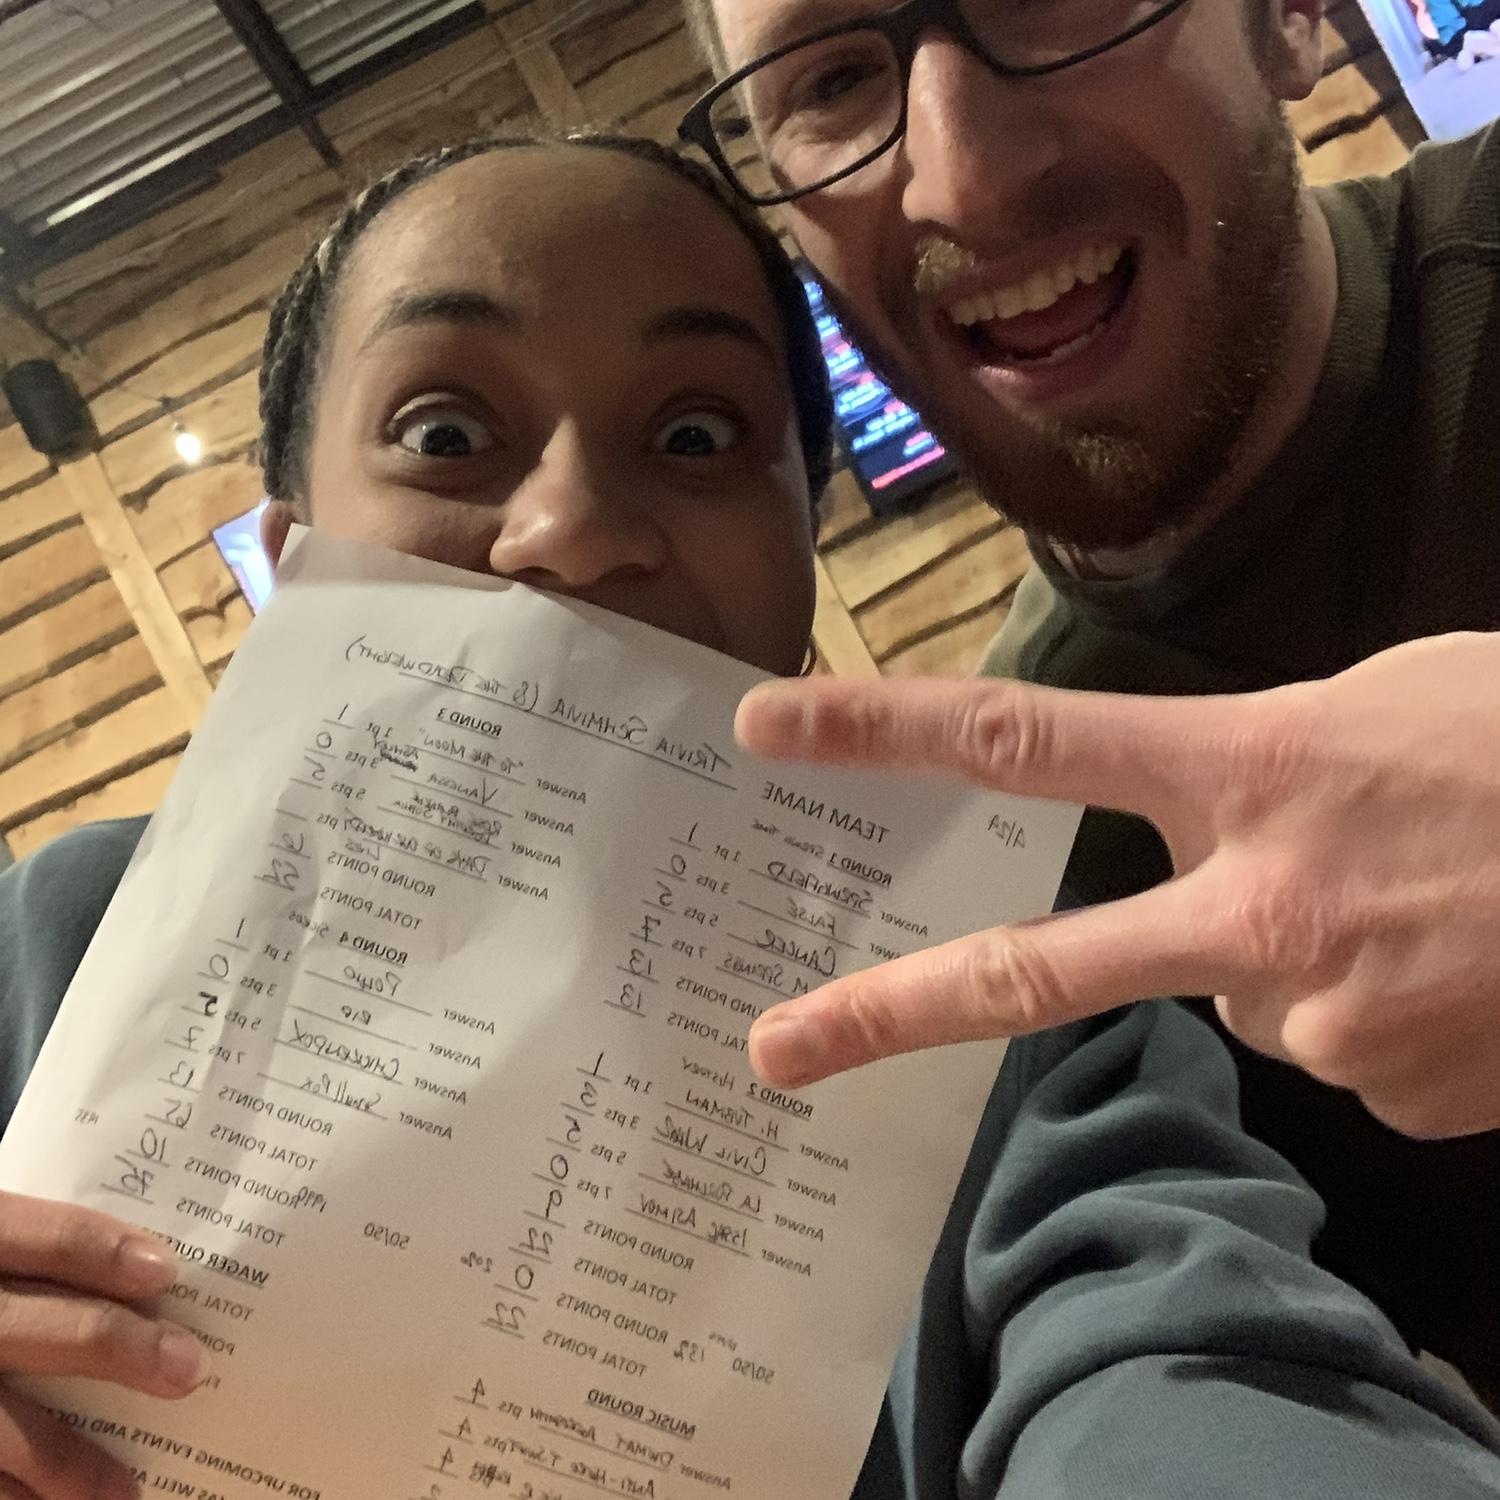 4/24
TEAM NAME TRIVIA SCHMIVIA (& THE DEADWEIGHT)
ROUND 1
Answer SPRINGFIELD 1 pt 1
Answer FALSE 3 pts 0
Answer CANCER 5 pts 5
M. SPRINGS 7 pts 7
ROUND POINTS 13
TOTAL POINTS 13
ROUND 2 HISTORY
Answer H. TUBMAN 1 pt 1
Answer CIVIL WAR 3 pts 3
Answer LA PURCHASE 5 pts 5
Answer ISAAC ASIMOV 7 pts 0
ROUND POINTS 9
TOTAL POINTS 22
50/50 132 ROUND POINTS 0
TOTAL POINTS 22
MUSIC ROUND
Answer pts 4
ANTI-HERO T SWIFT pts 4
4
ROUND 3
Answer "TO THE MOON" 1 pt 1
Answer VANESSA 3 pts 0
Answer 5 pts 5
Answer DAYS OF OUR LIVES pts
ROUND POINTS
TOTAL POINTS
ROUND 4 SICKOS
Answer POLIO 1 pt 1
Answer 3 pts 0
Answer CHICKENPOX 5 pts 5
Answer Small Pox 7 pts 7
ROUND POINTS 13
TOTAL POINTS
50/50 1999 ROUND POINTS 10
TOTAL POINTS 75
WAGER
TOTAL
POINT
FOR UPCOMING EVENTS AND
AS WELL AS